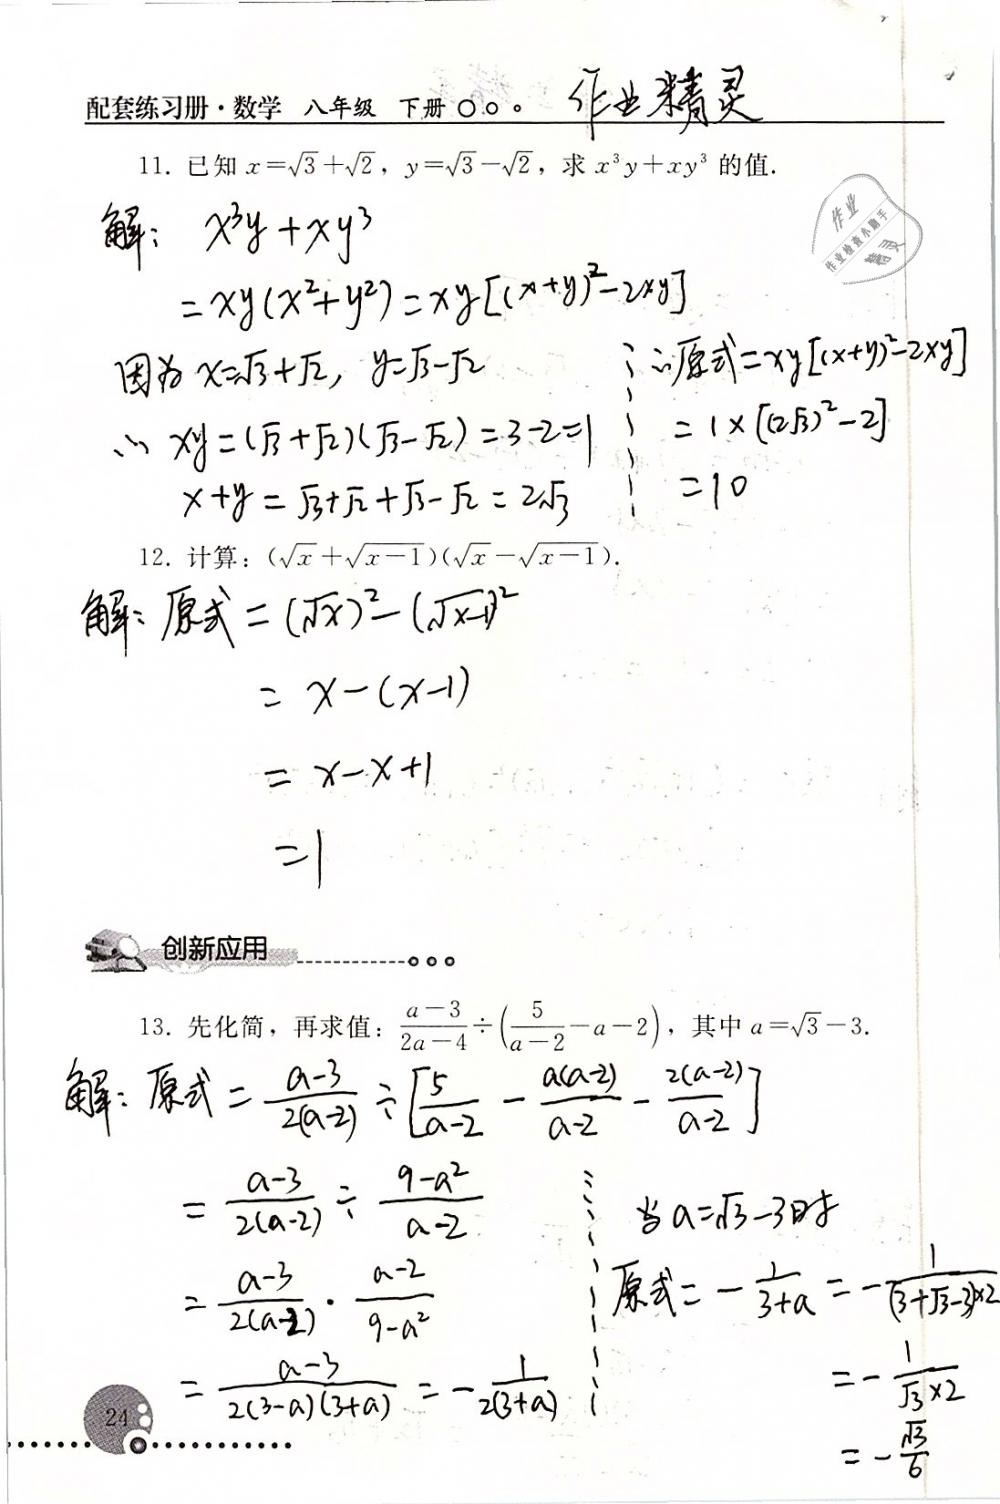 配套练习册·数学 八年级 下册 作业精灵
11. 已知 x=√3+√2, y=√3-√2, 求 x³y+xy³ 的值.
作业
作业检查小助手
精灵
解: x³y+xy³
=xy(x²+y²)=xy[(x+y)²-2xy]
因为 x=√3+√2, y=√3-√2
∴ xy=(√3+√2)(√3-√2)=3-2=1
x+y=√3+√2+√3-√2=2√3
∴原式=xy[(x+y)²-2xy]
=1×[(2√3)²-2]
=10
12. 计算: (√x+√(x-1))(√x-√(x-1)).
解: 原式=(√x)²-(√(x-1))²
=x-(x-1)
=x-x+1
=1
创新应用
13. 先化简, 再求值: (a-3)/(2a-4)÷(5/(a-2)-a-2), 其中 a=√3-3.
解: 原式=(a-3)/(2(a-2))÷[5/(a-2)-a(a-2)/(a-2)-2(a-2)/(a-2)]
=(a-3)/(2(a-2))÷(9-a²)/(a-2)
=(a-3)/(2(a-2))·(a-2)/(9-a²)
=(a-3)/(2(3-a)(3+a))=-1/(2(3+a))
当a=√3-3时
原式=-1/(3+a)=-1/((3+√3-3)×2)
=-1/(√3×2)
=-√3/6
24